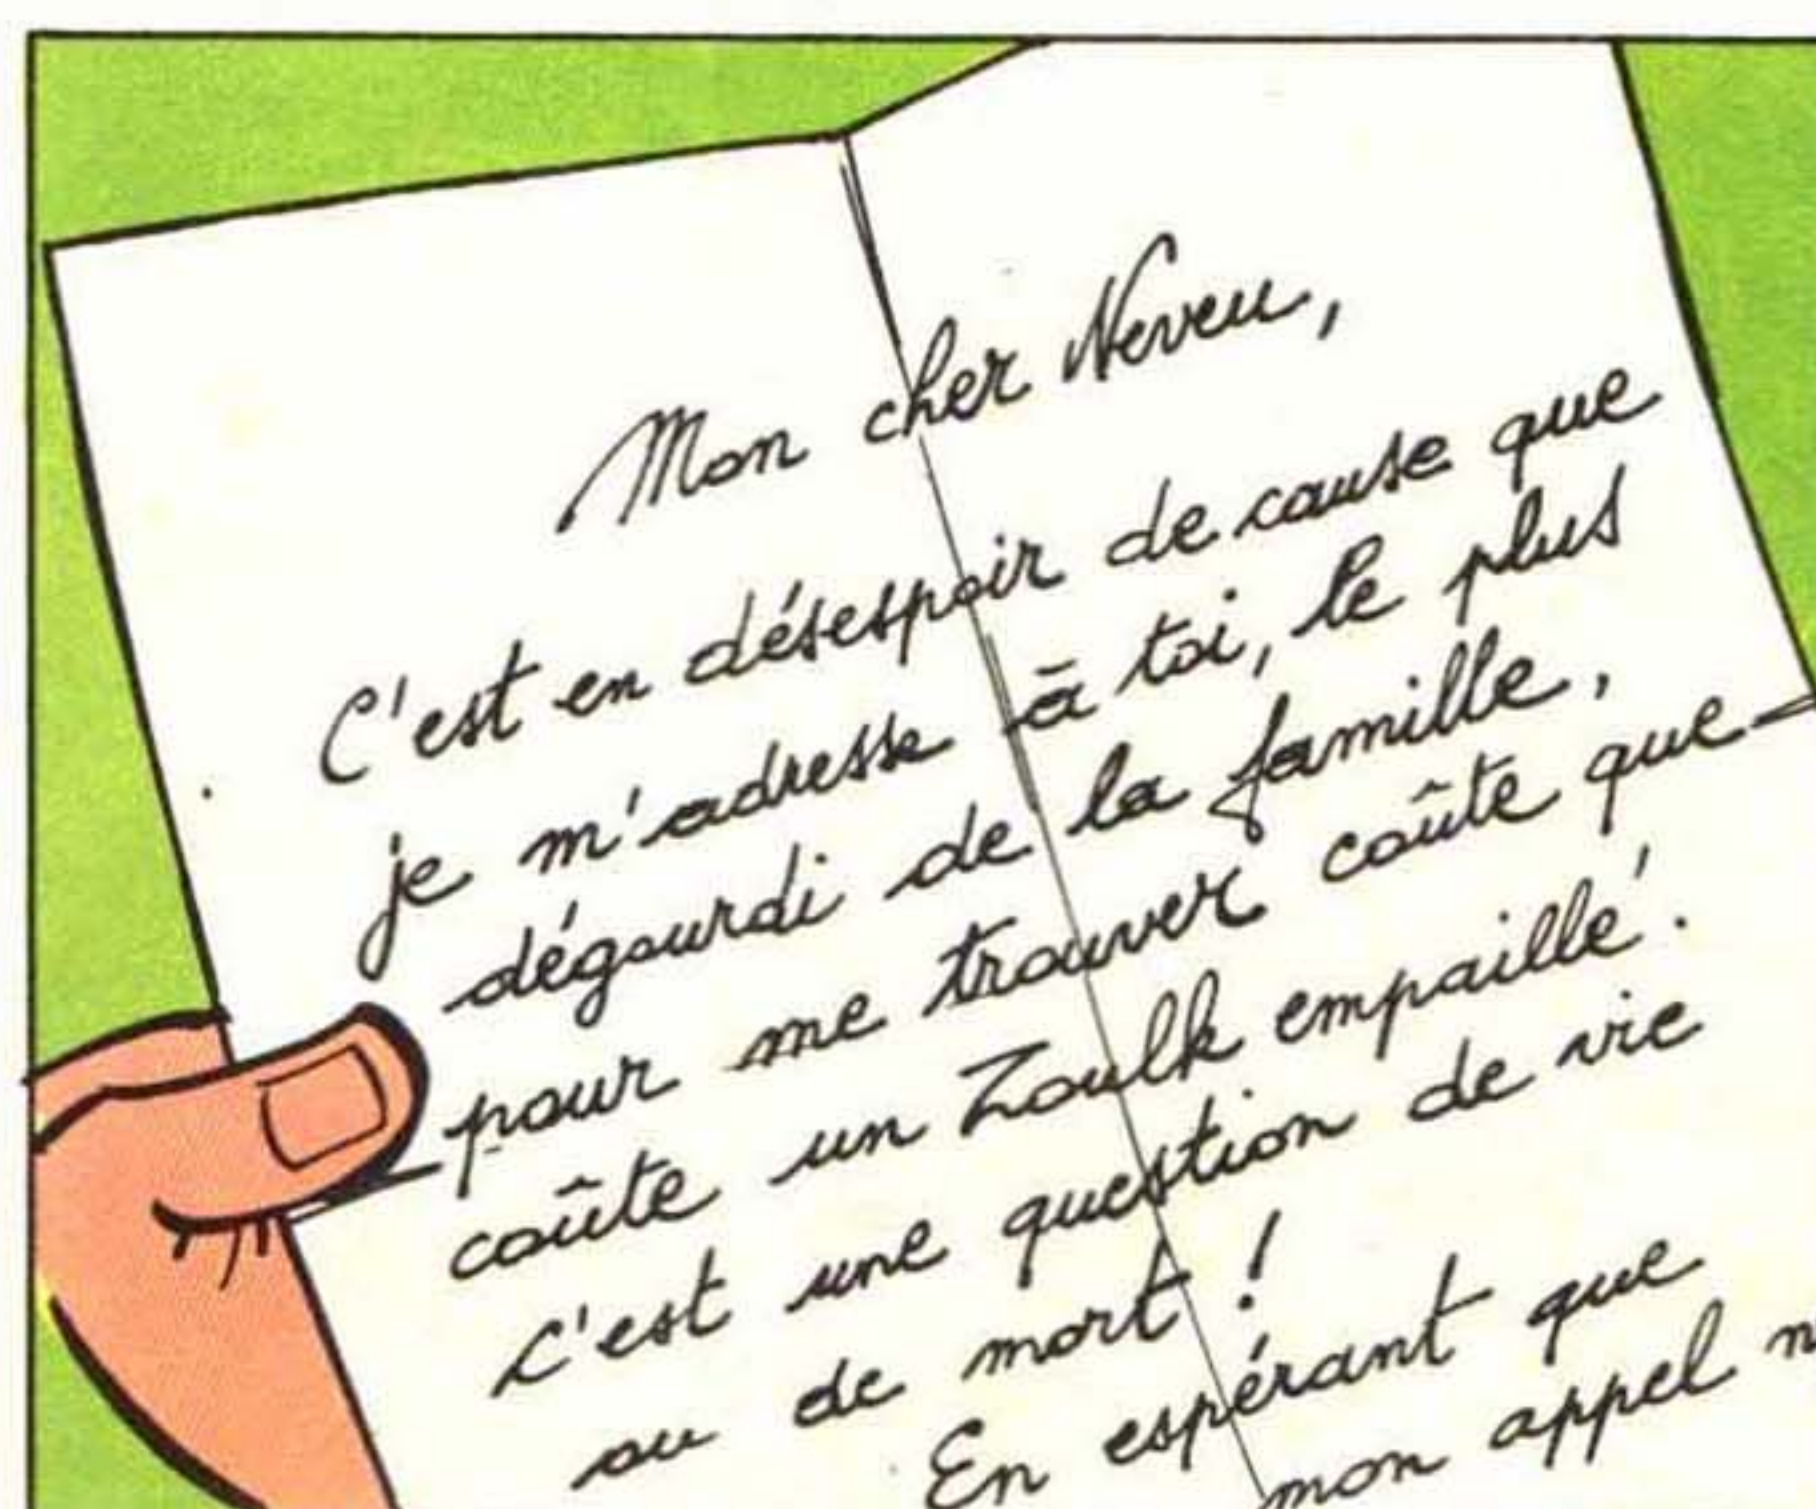 Mon cher Neveu,
C'est en désespoir de cause que
je m'adresse à toi, le plus
dégourdi de la famille,
pour me trouver coûte que
coûte un Zoulk empaillé.
C'est une question de vie
ou de mort !
En espérant que
mon appel n